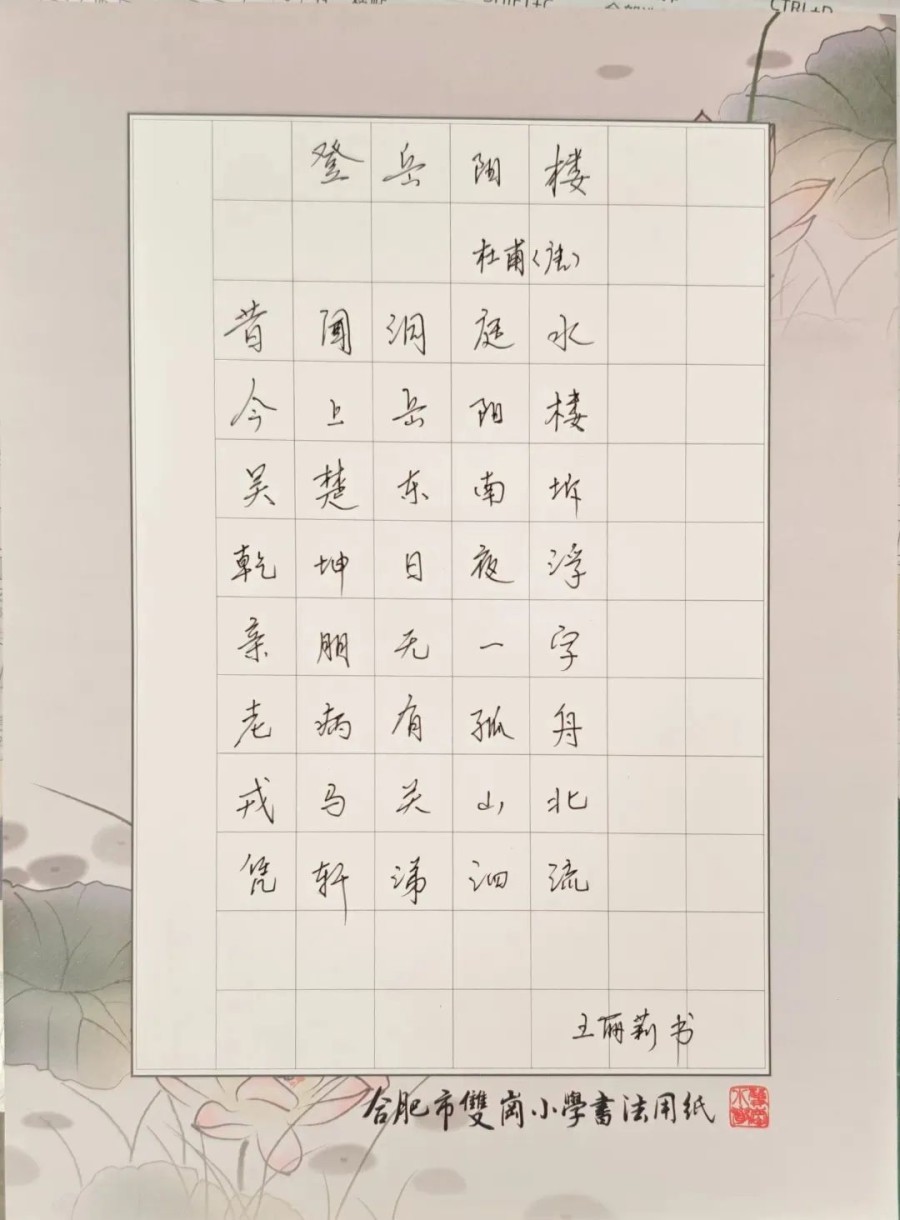 CTRL+D
登岳阳楼
杜甫〈唐〉
昔闻洞庭水
今上岳阳楼
吴楚东南坼
乾坤日夜浮
亲朋无一字
老病有孤舟
戎马关山北
凭轩涕泗流
王丽莉书
合肥市雙崗小學書法用紙